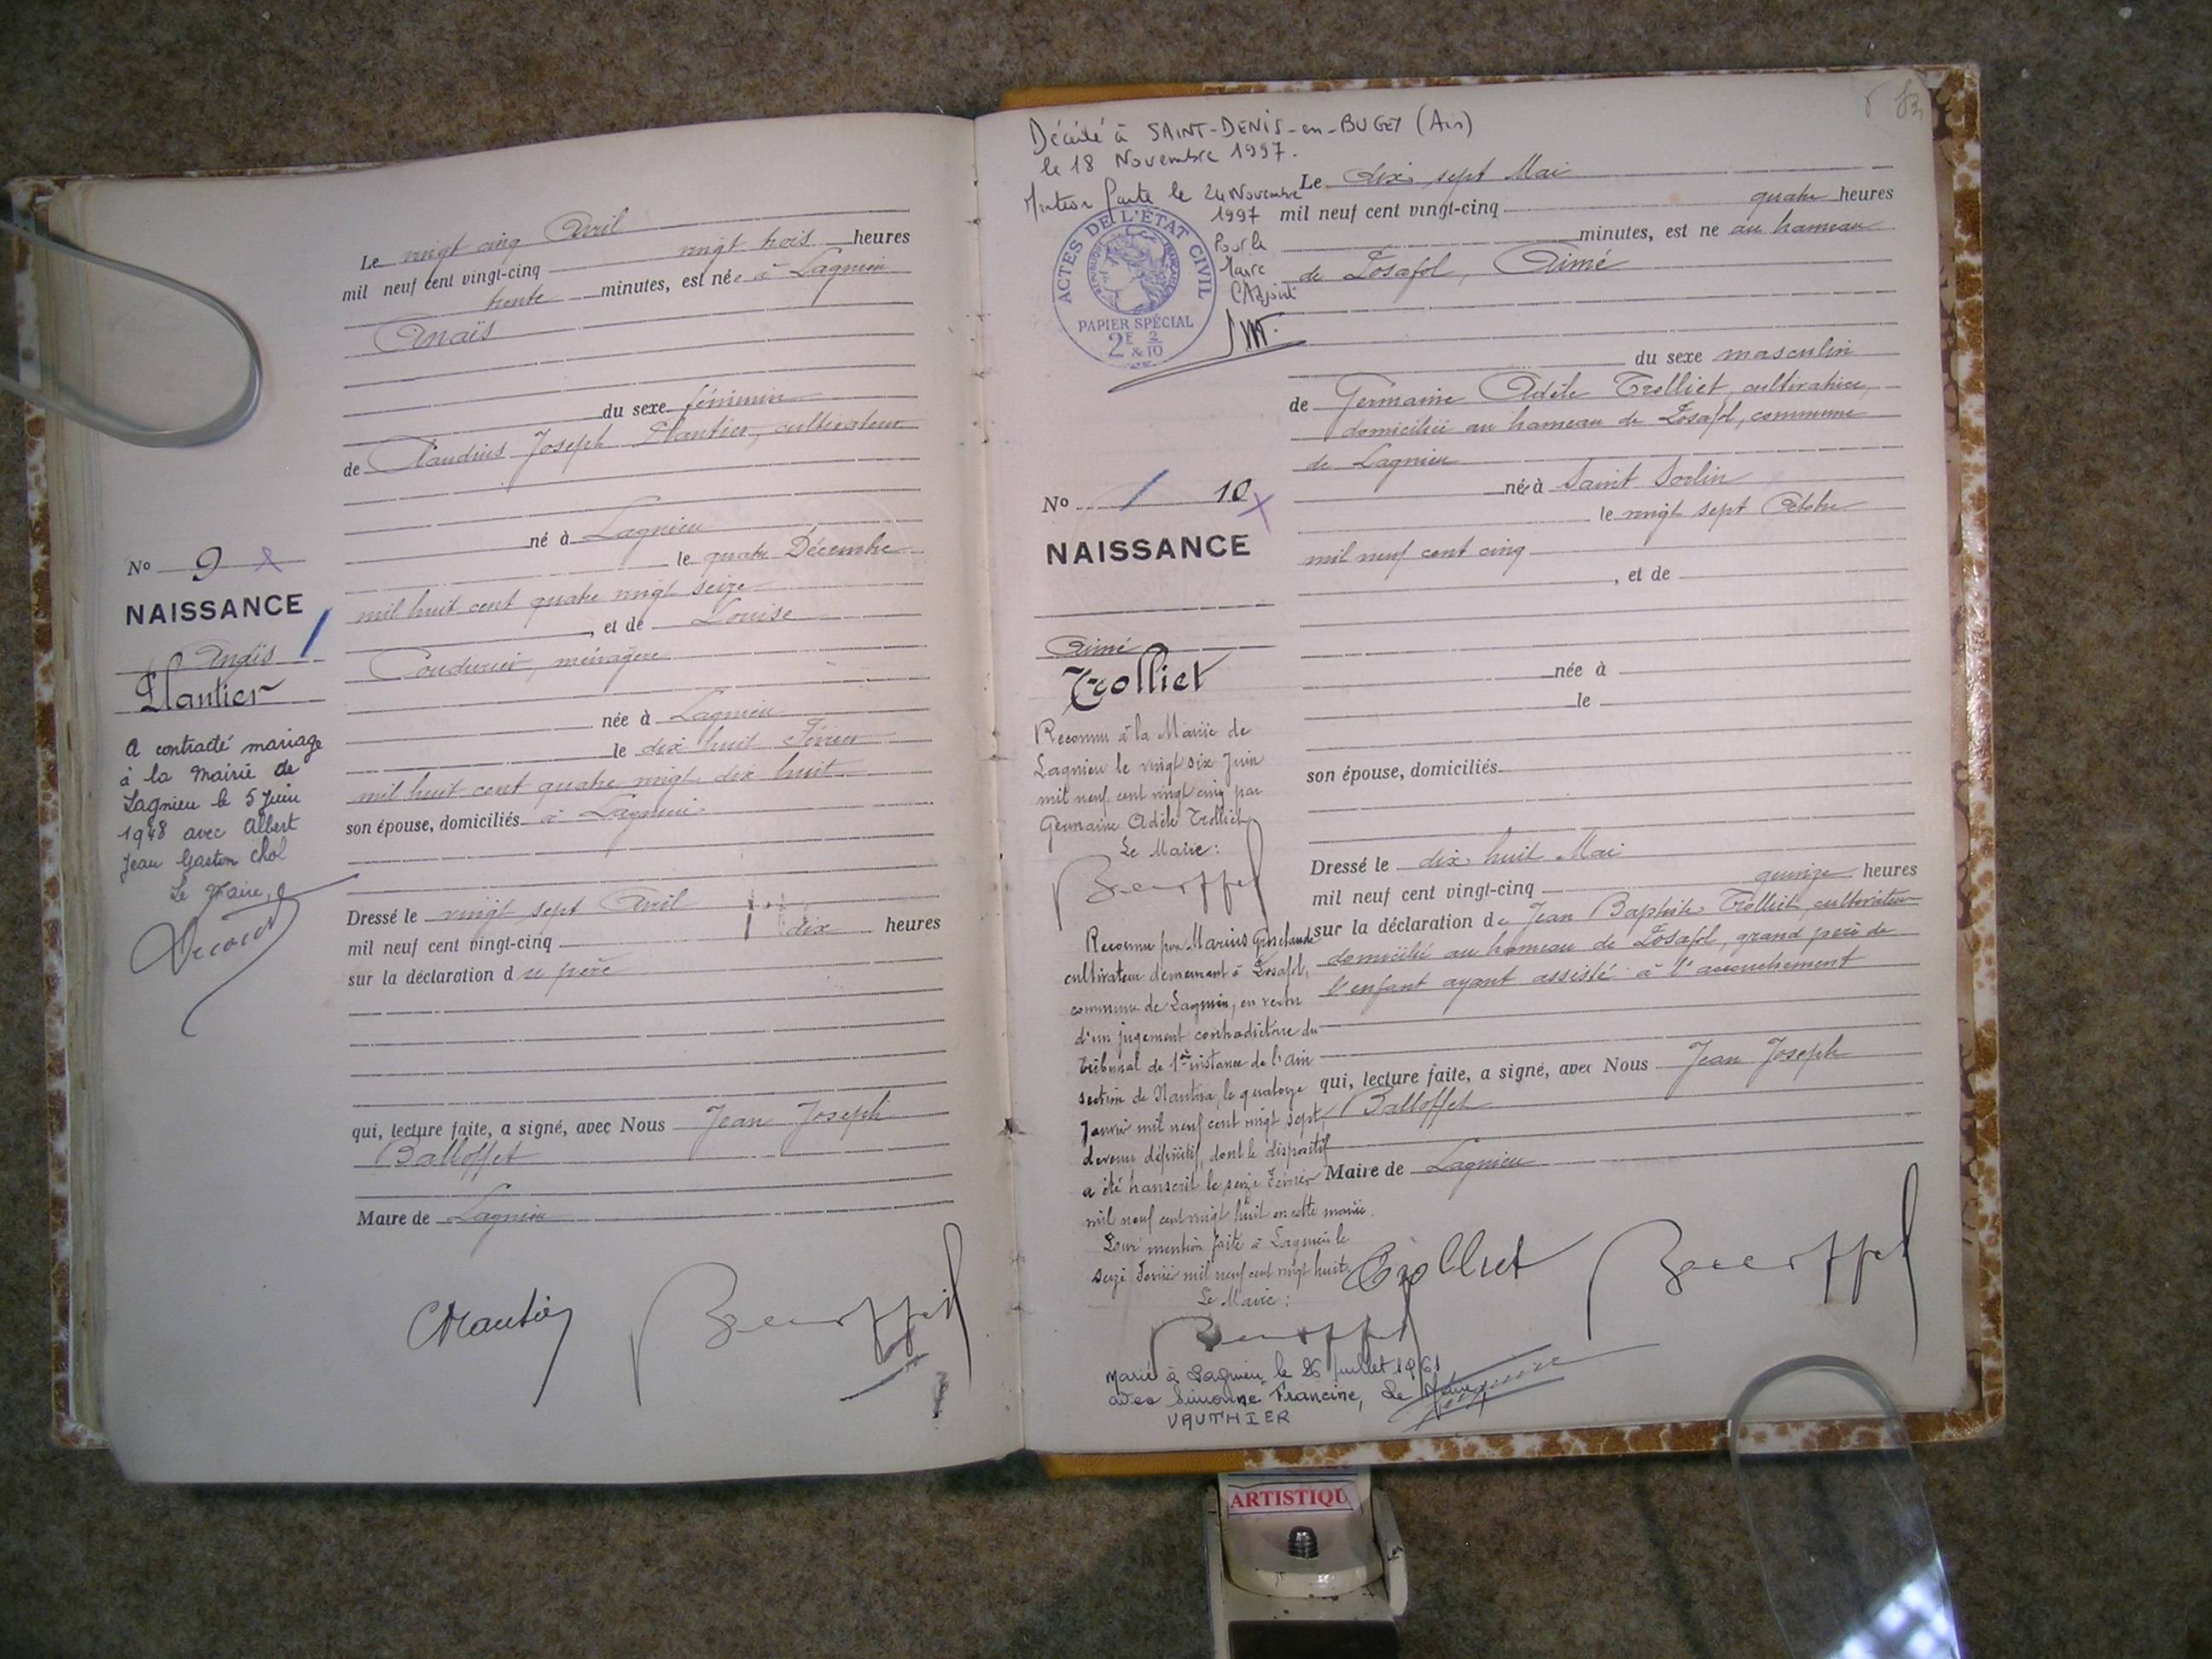 Le vingt cinq Avril
mil neuf cent vingt-cinq vingt trois heures
trente minutes, est née à Lagnieu
Anaïs
du sexe féminin
de Claudius Joseph Plantier, cultivateur
né à Lagnieu
le quatre Décembre
mil huit cent quatre vingt seize
, et de Louise
Coudurier, ménagère
née à Lagnieu
le dix huit Février
mil huit cent quatre vingt dix huit
son épouse, domiciliés à Lagnieu
Dressé le vingt sept Avril
mil neuf cent vingt-cinq dix heures
sur la déclaration du père
qui, lecture faite, a signé, avec Nous Jean Joseph
Balloffet
Maire de Lagnieu
No 9
NAISSANCE
Anaïs
Plantier
A contracté mariage
à la Mairie de
Lagnieu le 5 Juin
1948 avec Albert
Jean Gaston Chol
Le Maire,
83
Décédé à SAINT-DENIS-en-BUGEY (Ain)
le 18 Novembre 1997.
Mention faite le 24 Novembre
1997
Pour le
Maire
l'Adjoint
ACTES DE L'ÉTAT CIVIL
RÉPUBLIQUE FRANÇAISE
PAPIER SPÉCIAL
2E & 2/10
Le dix sept Mai
mil neuf cent vingt-cinq quatre heures
minutes, est né au hameau
de Posafol, Aimé
du sexe masculin
de Germaine Adèle Trolliet, cultivatrice,
domiciliée au hameau de Posafol, commune
de Lagnieu
née à Saint Sorlin
le vingt sept Octobre
mil neuf cent cinq
, et de
née à
le
son épouse, domiciliés
Dressé le dix huit Mai
mil neuf cent vingt-cinq quinze heures
sur la déclaration de Jean Baptiste Trolliet, cultivateur
domicilié au hameau de Posafol, grand père de
l'enfant ayant assisté à l'accouchement
qui, lecture faite, a signé, avec Nous Jean Joseph
Balloffet
Maire de Lagnieu
Trolliet
No 10
NAISSANCE
Aimé
Trolliet
Reconnu à la Mairie de
Lagnieu le vingt six Juin
mil neuf cent vingt cinq par
Germaine Adèle Trolliet
Le Maire :
Reconnu par Marius
cultivateur demeurant à Posafol,
commune de Lagnieu, en vertu
d'un jugement contradictoire du
Tribunal de 1re instance de l'Ain
section de Nantua, le quatorze
Janvier mil neuf cent vingt sept,
devenu définitif, dont le dispositif
a été transcrit le seize Février
mil neuf cent vingt huit en cette mairie.
Pour mention faite à Lagnieu le
seize Février mil neuf cent vingt huit
Le Maire :
Marié à Lagnieu, le 26 Juillet 1961
avec Simonne Francine, Le Maire
VAUTHIER
ARTISTIQU